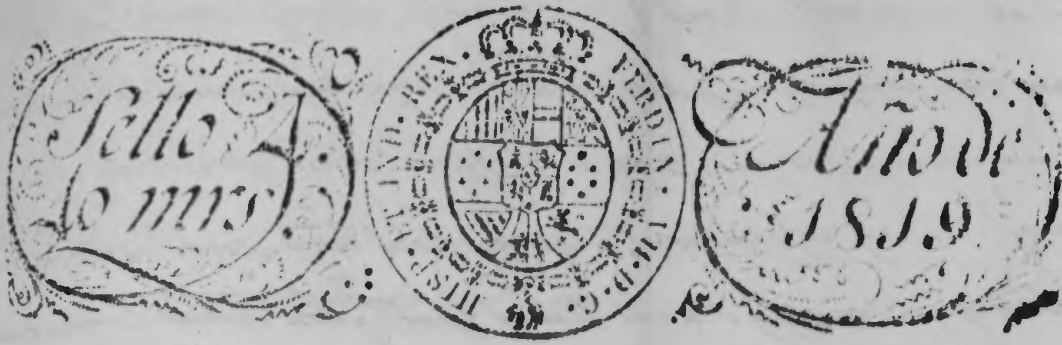 Sello 4.º
40 mrs.
FERDIN · VII · D · G · HISP · ET IND · REX ·
Año de
1819.